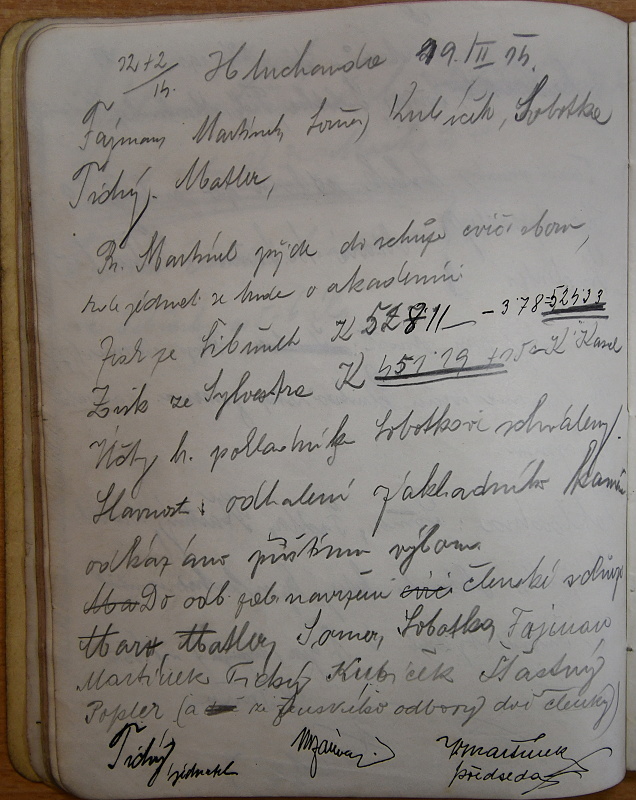 Hluchauda 19. III 15.
Fajman, Martínek, Somer, Kubíček, Sobotka
Tichý. Matler,
Br. Martínek půjde do schůze cvič. sboru,
kde jednat se bude o akademii
Zisk ze Šibřinek K 528 11 — 3·78 = 524 33
Zisk ze Sylvestra K 451·19 K Kasel
Účty br. pokladníka Sobotkovi schváleny.
Slavnost odhalení základního kamene
odkázáno příštímu výboru.
Do odb. zab. navrženi členské schůzi
Matler, Somer, Sobotka, Fajman
Martínek Tichý Kubíček Šťastný
Popler (a ze ženského odboru dvě členky)
Tichý, jednatel
Martínek
předseda